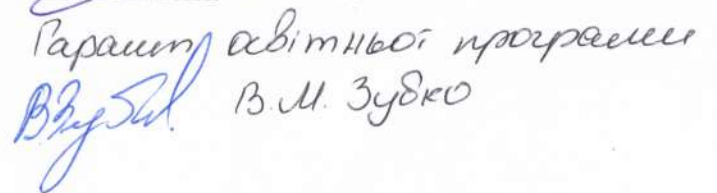 Гарант освітньої програми
В.М. Зубко